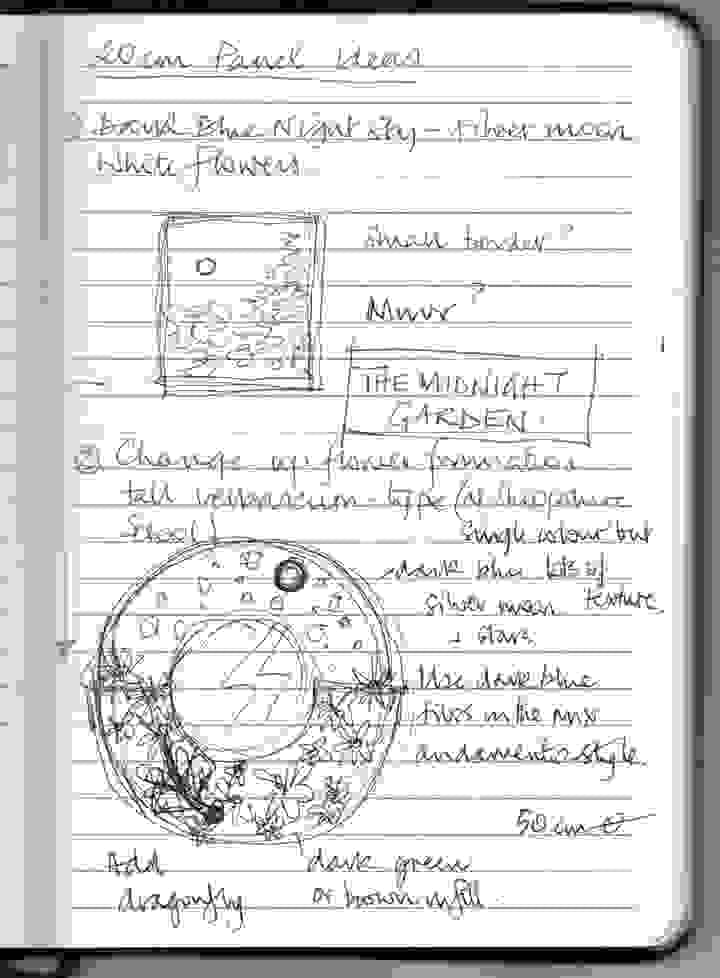 20cm Panel Ideas
① Dark Blue Night sky – silver moon
White flowers
Small border?
Mirror?
THE MIDNIGHT
GARDEN.
② Change up flower formation
tall type (at Shropshire
School)
Single colour but
dark blue lots of
silver moon texture
+ stars
Use dark blue
tiles in the mix
andamento style
50cm
Add
dragonfly
dark green
or brown infill